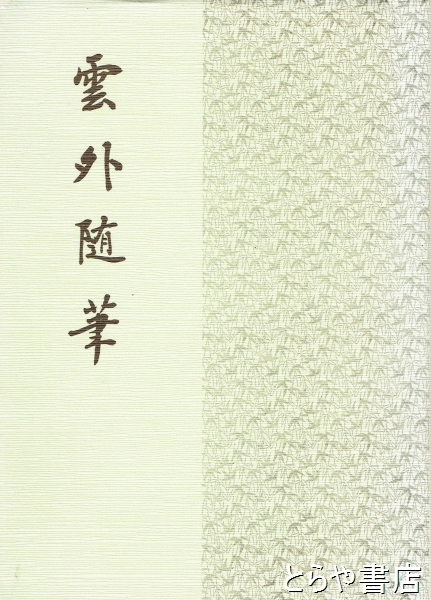 雲外随筆
とらや書店